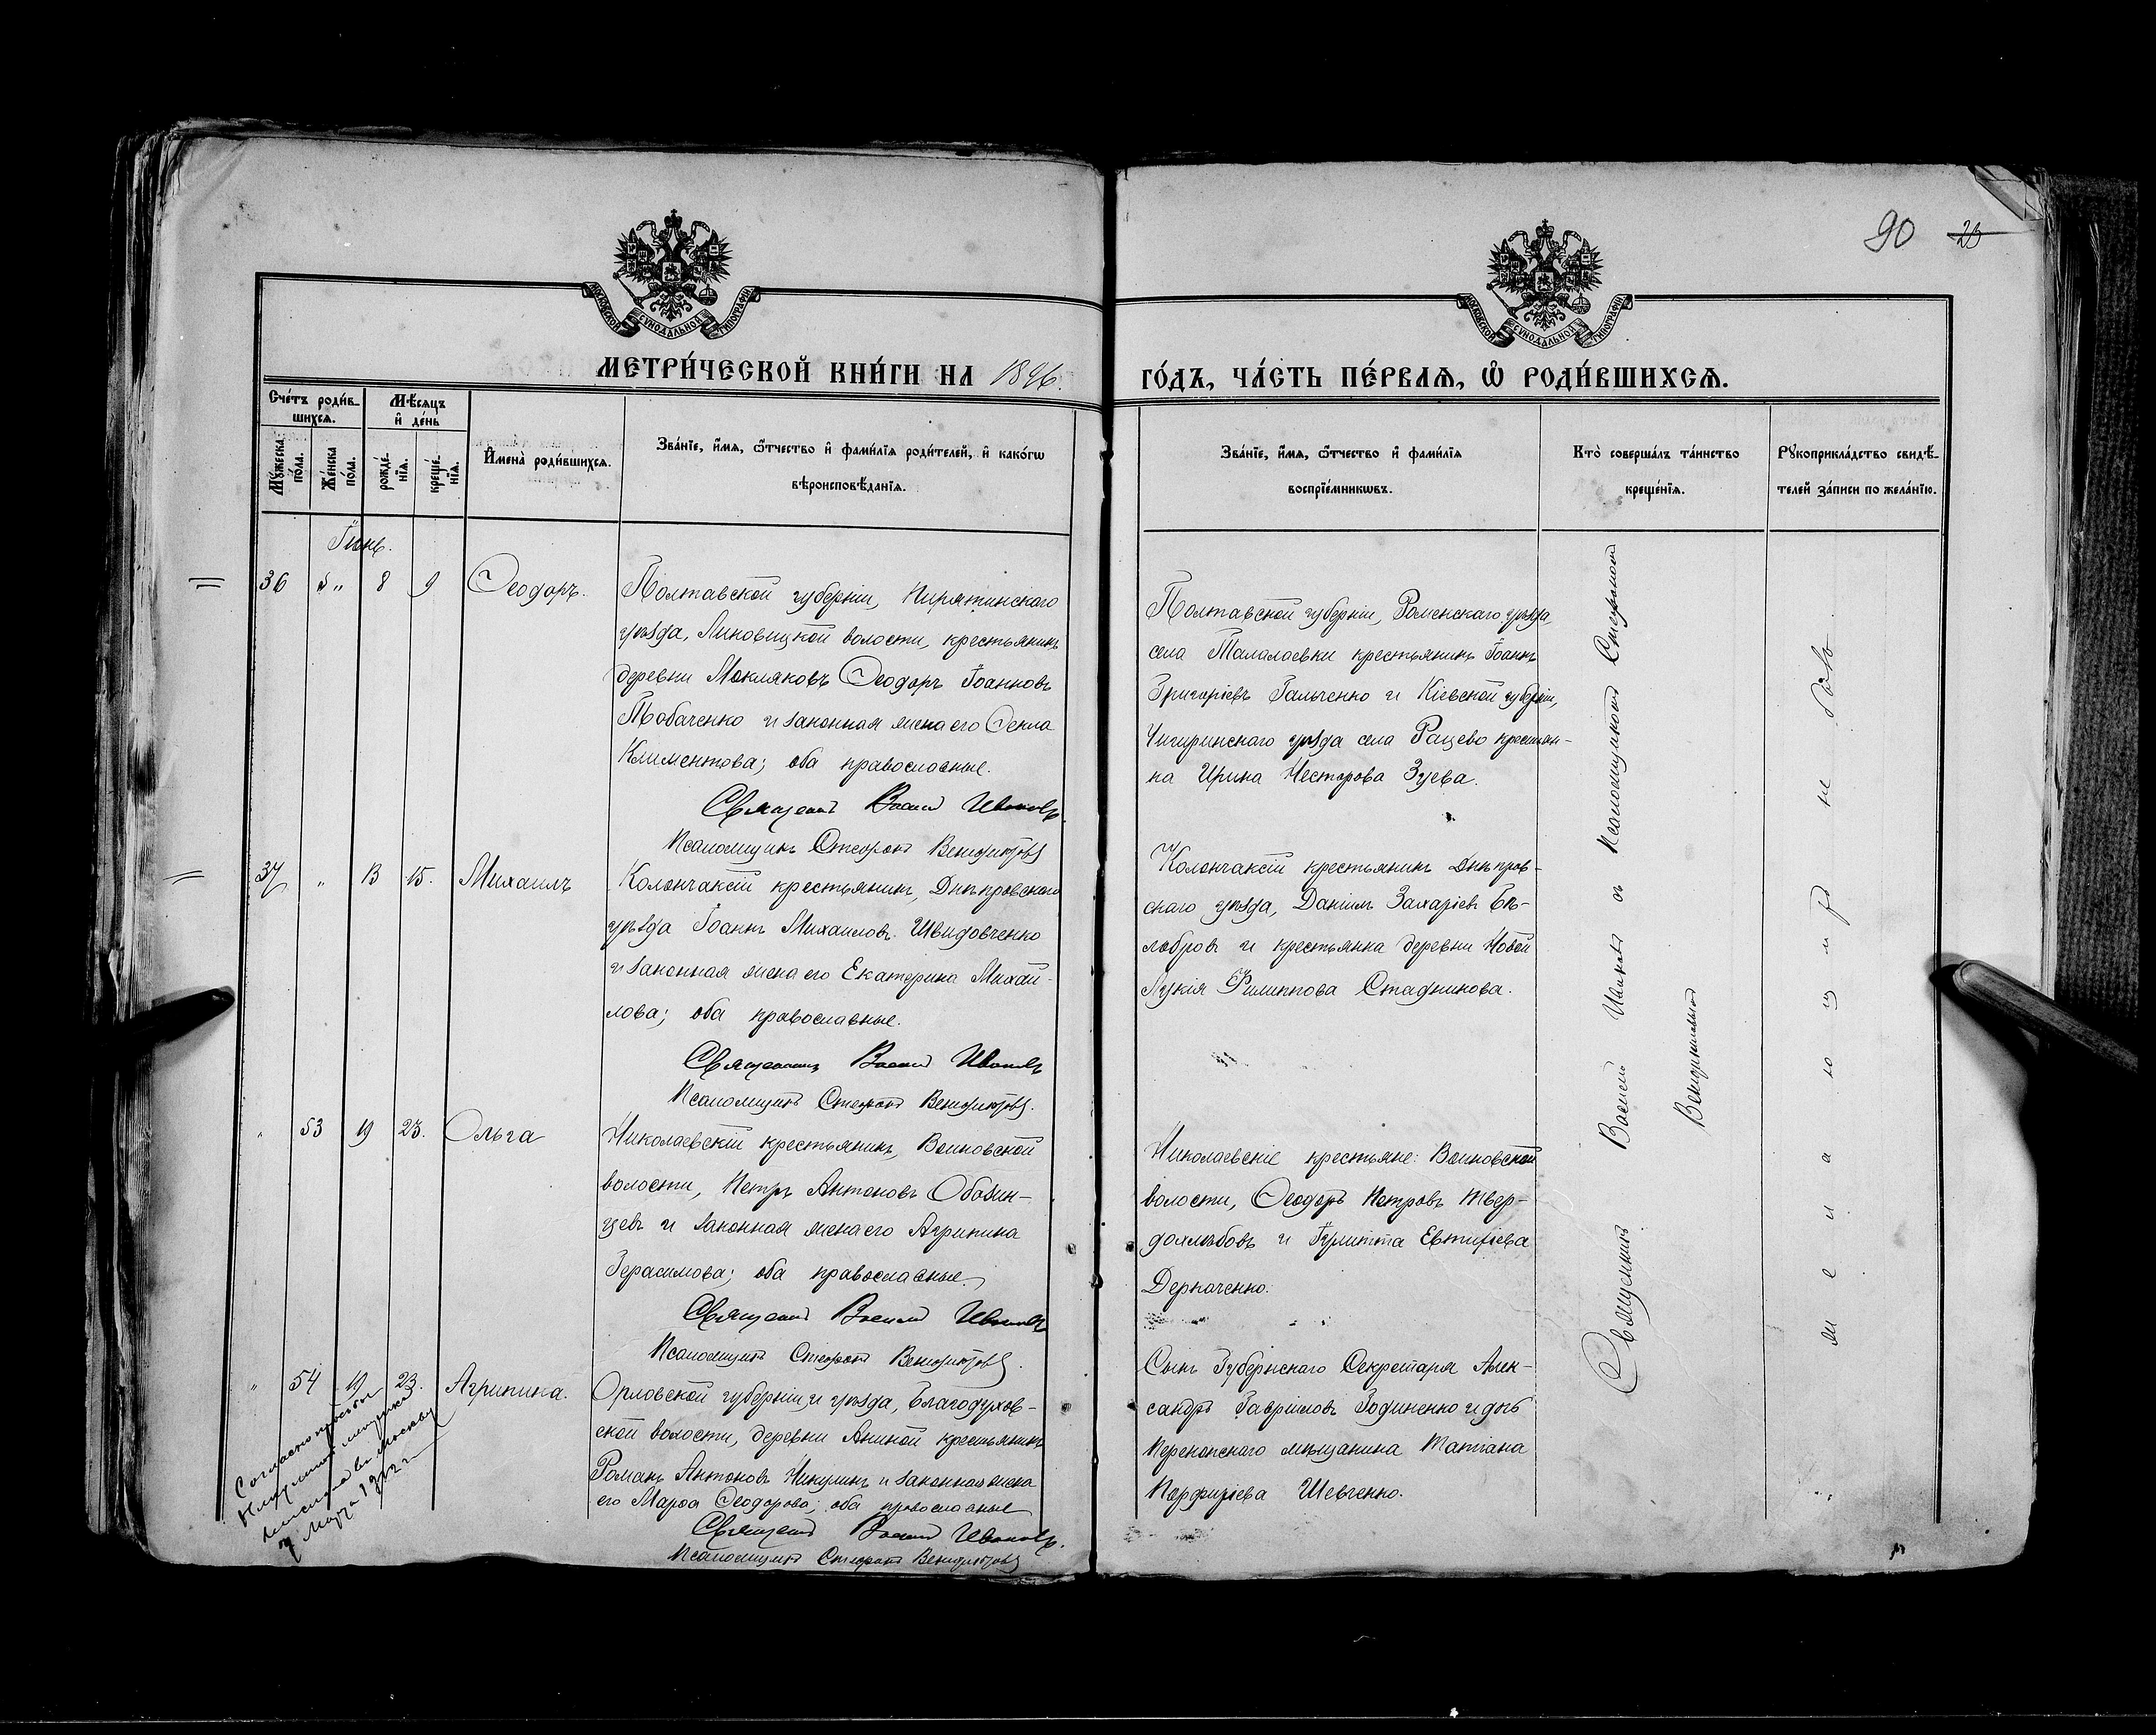 90 20
МОСКОВСКОЙ СУНОДАЛЬНОЙ ТИПОГРАФІИ
МОСКОВСКОЙ СУНОДАЛЬНОЙ ТИПОГРАФІИ
МЕТРИ́ЧЕСКОЙ КНИ́ГИ НА 1896.
ГО́ДЪ, ЧА́СТЬ ПЕ́РВАѦ, Ѽ РОДИ́ВШИХСѦ.
Сче́тъ роди́в-
шихсѧ.
Мꙋ́жеска по́ла.
Же́нска по́ла.
Мѣ́сяцъ
и҆ де́нь
рожде́-
нїѧ.
креще́-
нїѧ.
И҆мена̀ роди́вшихсѧ.
Зва́нїе, и҆́мѧ, ѻ҆́тчество и҆ фами́лїѧ роди́телей, и҆ како́гѡ
вѣроисповѣ́данїѧ.
Зва́нїе, и҆́мѧ, ѻ҆́тчество и҆ фами́лїѧ
воспрїе́мникѡвъ.
Кто̀ соверша́лъ та́инство
креще́нїѧ.
Рꙋкоприкла́дство свидѣ́-
телей за́писи по жела́нїю.
36 " 8 9 Ѳеодоръ.
Полтавской губерніи, Пирятинскаго
уѣзда, Линовицкой волости, крестьянинъ
деревни Мокляковъ Ѳеодоръ Іоанновъ
Тобаченко и законная жена его Ѳекла
Климентова; оба православные.
Священникъ Василій Ивановъ
Псаломщикъ Стефанъ Венедиктовъ
Полтавской губерніи, Роменскаго уѣзда,
села Талалаевки крестьянинъ Іоаннъ
Григоріевъ Гальченко и Кіевской губерніи,
Чигиринскаго уѣзда села Рацево крестьян-
ка Ирина Несторова Зуева.
37 " 13 15. Михаилъ
Колончакскій крестьянинъ, Днѣпровскаго
уѣзда Іоаннъ Михаиловъ Швидовченко
и законная жена его Екатерина Михаи-
лова; оба православные.
Священникъ Василій Ивановъ
Псаломщикъ Стефанъ Венедиктовъ.
Колончакскій крестьянинъ Днѣпров-
скаго уѣзда, Даніилъ Захаріевъ Бѣ-
лобровъ и крестьянка деревни Новой
Лукія Филиппова Стадникова.
" 53 19 23. Ольга
Николаевскій крестьянинъ, Воиновской
волости, Петръ Антоновъ Обозин-
цевъ и законная жена его Агрипина
Герасимова; оба православные.
Священникъ Василій Ивановъ
Псаломщикъ Стефанъ Венедиктовъ.
Николаевскіе крестьяне: Воиновской
волости, Ѳеодоръ Петровъ Твер-
дохлѣбовъ и Іулитта Евтихіева
Деркаченко.
" 54 19 23. Агрипина.
Орловской губерніи и уѣзда, Благодухов-
ской волости, деревни Аниной крестьянинъ
Романъ Антоновъ Никулинъ и законная жена
его Марѳа Ѳеодорова; оба православные
Священникъ Василій Ивановъ.
Псаломщикъ Стефанъ Венедиктовъ
Сынъ Губернскаго Секретаря Алек-
сандръ Гавріиловъ Годиненко и дочь
Перекопскаго мѣщанина Татіана
Порфиріева Шевченко.
Священникъ Василій Ивановъ съ псаломщикомъ Стефаномъ
Венедиктовымъ
желающихъ не было.
Согласно просьбы
7 Марта 1912 г.